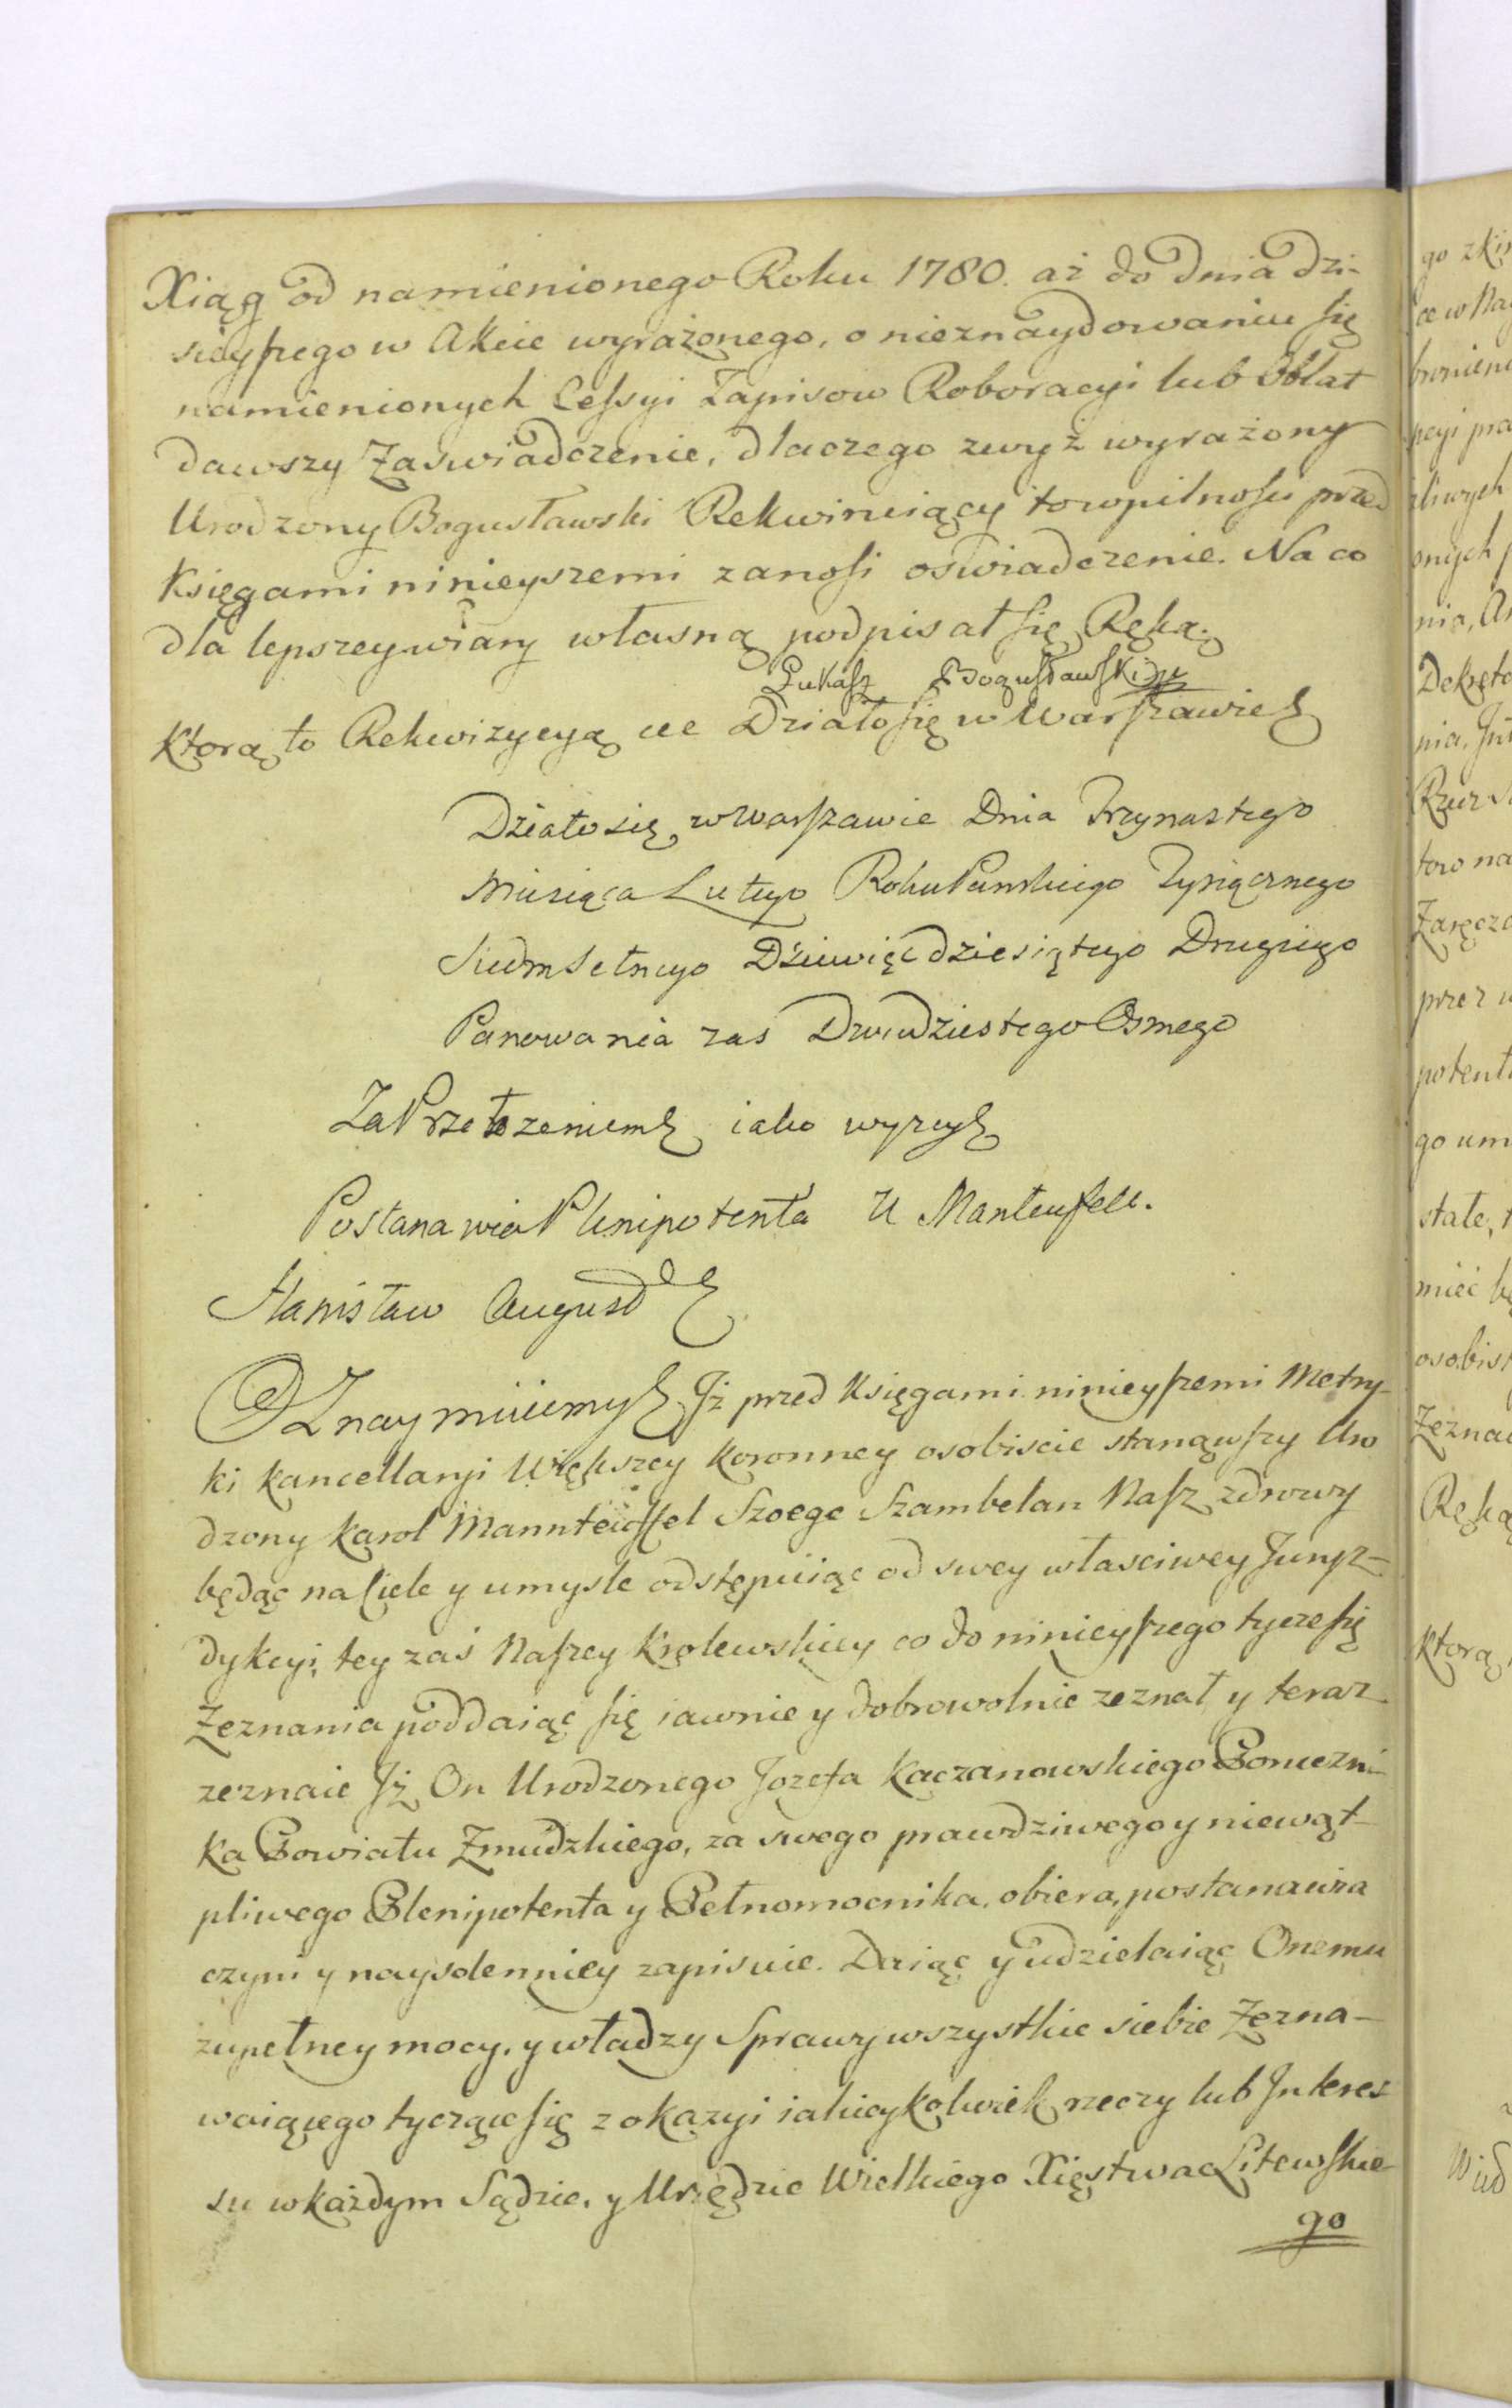 Xiąg od namienionego Roku 1780. aż do Dnia dzi-
sieyszego w Akcie wyrażonego, o nieznaydowaniu się
namienionych Cessyi Zapisow Roboracyi lub Oblat
dawszy Zaswiadczenie, dlaczego zwyż wyrażony
Urodzony Bogusławski Rekwiruiący to w pilnosci przed
Księgami ninieyszemi zanosi oswiadczenie. Na co
dla lepszey wiary własną podpisał się Ręką.
Łukasz Bogusławski
Ktorą to Rekwizycyą &c Działo się w Warszawie
Działo się w Warszawie Dnia Trzynastego
Miesiąca Lutego Roku Panskiego Tysiącznego
Siedmsetnego Dziewięćdziesiątego Drugiego
Panowania zas Dwudziestego Osmego
Za Przełozeniem iako wyzey
Postanawia Plenipotenta U Manteufell.
Stanisław August
Oznaymuiemy Jż przed Księgami ninieyszemi Metry-
ki Kancellaryi Większey Koronney osobiscie stanąwszy Uro
dzony Karol Mannteuffel Szoege Szambelan Nasz zdrowy
będąc na Ciele y umysle odstępuiąc od swey własciwey Juryz-
dykcyi, tey zaś Naszey Krolewskiey co do ninieyszego tycze się
Zeznania poddaiąc się iawnie y dobrowolnie zeznał y teraz
zeznaie Jż On Urodzonego Jozefa Kaczanowskiego Komorni-
ka Powiatu Zmudzkiego, za swego prawdziwego y niewąt-
pliwego Plenipotenta y Pełnomocnika, obiera, postanawia
czyni y naysolenniey zapisuie. Daiąc y udzielaiąc Onemu
zupełney mocy, y władzy Sprawy wszystkie siebie Zezna-
waiącego tyczące się z okazyi iakieykolwiek rzeczy lub Jnteres
su w każdym Sądzie, y Urzędzie Wielkiego Xięstwa Litewskie
go